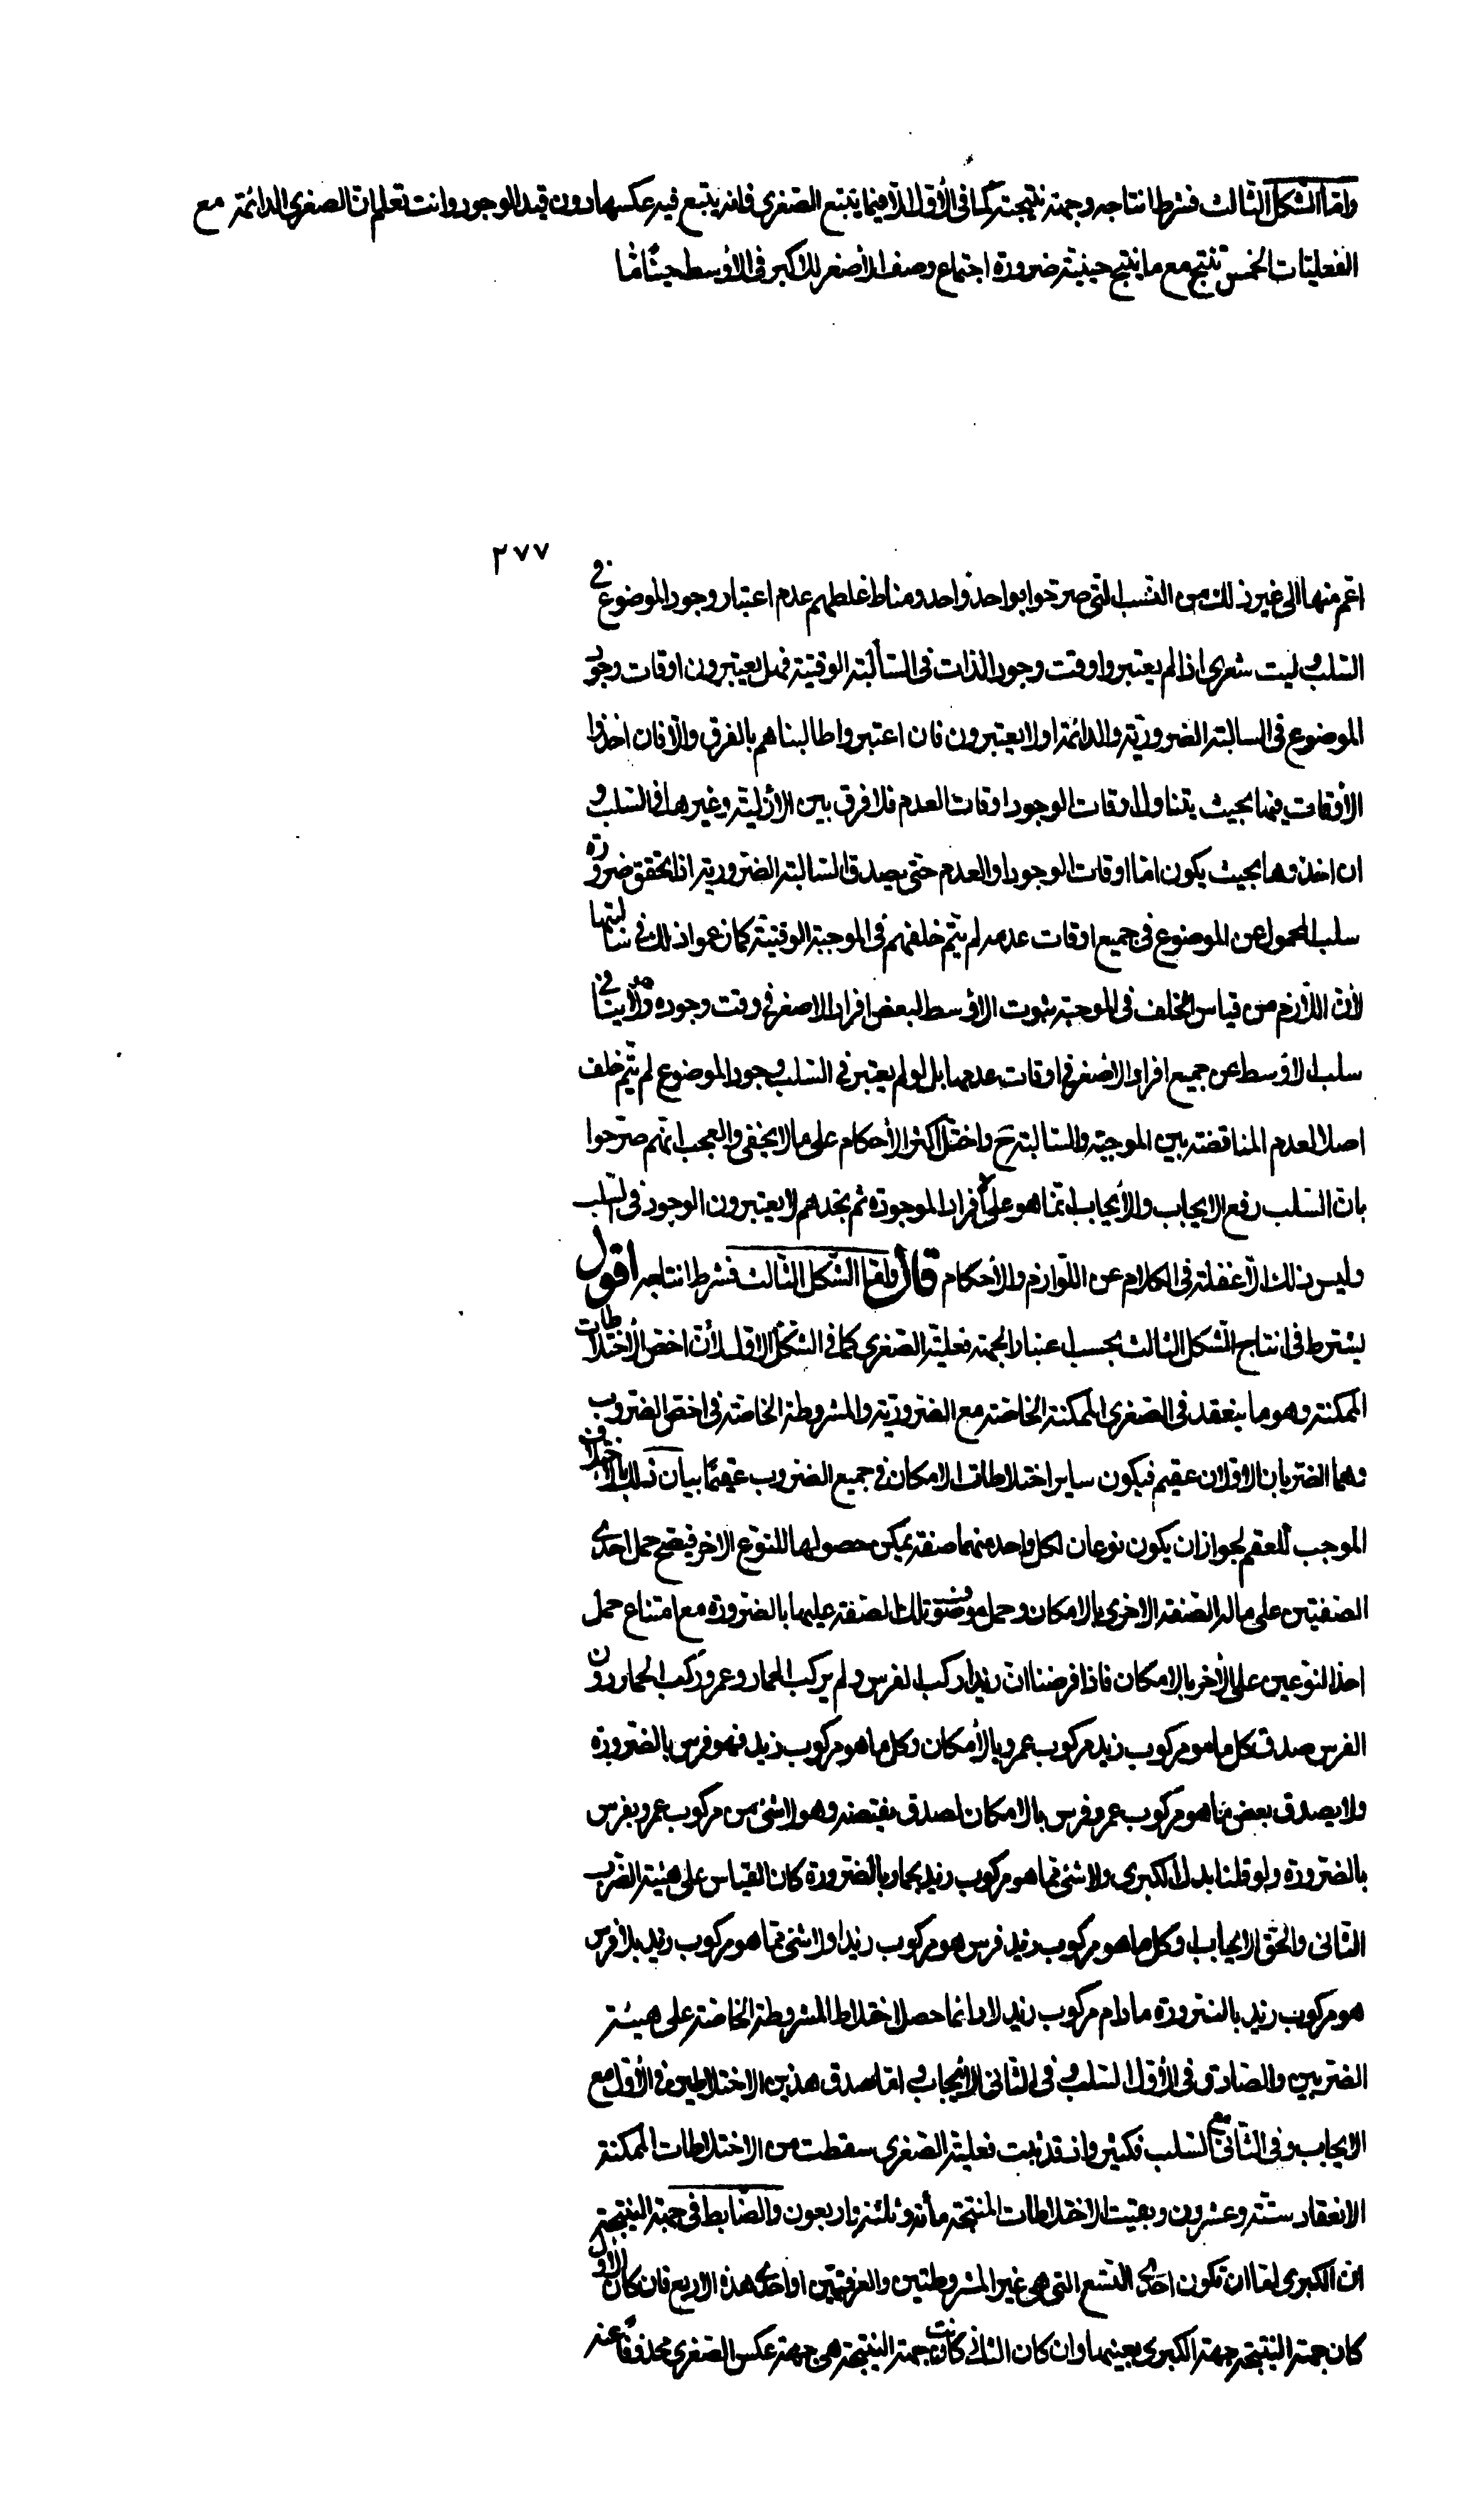 وامّا الشكل الثالث فشرط انتاجه وجهة نتيجته كما فى الأول الّا فيما يتبع الصغرى فانه يتبع فيه عكسها دون قيد اللاوجود وانت تعلم انّ الصغرى الدائمة مع
الفعليات الخمس تنتج مع ما ينتج حينية ضرورة اجتماع وصف الأصغر للاكبر فى الأوسط حينًا مّا
٢٧٧
اعم منها الى غير ذلك من النسب التى صرحوا بواحد واحد ومناط غلطهم عدم اعتبار وجود الموضوع فى
السلب وليت شعرى اذا لم يعتبروا وقت وجود الذات فى السالبة الوقتية فهل يعتبرون اوقات وجود
الموضوع فى السالبة الضرورية والدائمة او لا يعتبرون فان اعتبروا طالبناهم بالفرق والّا فان اخذوا
الأوقات فيهما بحيث يتناول اوقات الوجود اوقات العدم فلا فرق بين الازلية وغيرها فى السلب و
ان اخذوها بحيث يكون امّا اوقات الوجود او العدم حتى يصدق السالبة الضرورية اذا تحقق ضرورة
سلب المحمول عن الموضوع فى جميع اوقات عدمه لم يتم خلفهم فى الموجبة الوقتية كما زعموا ذلك فى سالبتها
لأن اللازم من قياس الخلف فى الموجبة ثبوت الاوسط لبعض افراد الاصغر فى وقت وجوده وهو لا ينافى
سلب الاوسط عن جميع افراد الاصغر فى اوقات عدمها بل لو لم يعتبر فى السلب وجود الموضوع لم يتم خلف
اصلا لعدم المناقضة بين الموجبة والسالبة ح واختل اكثر الأحكام على ما لا يخفى والعجب انهم صرحوا
بان السلب رفع الايجاب والايجاب انما هو على الافراد الموجودة ثم نجدهم لا يعتبرون الوجود فى السلب
وليس ذلك الّا غفلة فى الكلام عن اللوازم والأحكام قال وامّا الشكل الثالث فشرط انتاجه اقول
يشترط فى انتاج الشكل الثالث بحسب اعتبار الجهة فعلية الصغرى كما فى الشكل الاول لأن اخص الاختلاطات
الممكنة وهو ما ينعقد فى الصغرى الممكنة الخاصة مع الضرورية والمشروطة الخاصة فى اخص الضروب
وهما الضربان الاولان عقيم فيكون ساير اختلاطات الامكان فى جميع الضروب عقيمًا بيان ذلك بالاختلاف
الموجب للعقم لجواز ان يكون نوعان لكل واحد منهما صفة يمكن حصولها للنوع الاخر فيصح حمل احدى
الصفتين على ماله الصفة الاخرى بالامكان وحمل موضوع تلك الصفة عليها بالضرورة مع امتناع حمل
احد النوعين على الأخر بالامكان فاذا فرضنا ان زيدا ركب الفرس ولم يركب الحمار وعمرو ركب الحمار دون
الفرس صدق كل ما هو مركوب زيد مركوب عمرو بالأمكان وكل ما هو مركوب زيد فهو فرس بالضرورة
ولا يصدق بعض ما هو مركوب عمرو فرس بالامكان لصدق نقيضه وهو لا شئ من مركوب عمرو بفرس
بالضرورة ولو قلنا بدل الكبرى ولا شئ مما هو مركوب زيد بحمار بالضرورة كان القياس على هيئة الضرب
الثانى والحق الايجاب وكل ما هو مركوب زيد فرس هو مركوب زيد او لا شئ مما هو مركوب زيد بلا فرس
هو مركوب زيد بالضرورة مادام مركوب زيد لا دائما حصل اختلاط المشروطة الخاصة على هيئة
الضربين والصادق فى الأول السلب وفى الثانى الايجاب واما صدق هذين الاختلاطين فى الأول مع
الايجاب وفى الثانى مع السلب فكثير واذ قد ثبت فعلية الصغرى سقطت من الاختلاطات الممكنة
الانعقاد ستة وعشرون وبقيت الاختلاطات المنتجة مائة وثلثة واربعون والضابط فى جهة النتيجة
ان الكبرى امّا ان تكون احدى التسع التى هى غير المشروطتين والعرفيتين او احدى هذه الاربع فان كان الاول
كان جهة النتيجة جهة الكبرى بعينها وان كان الثانى كانت جهة النتيجة هى جهة عكس الصغرى محذوفا عنه